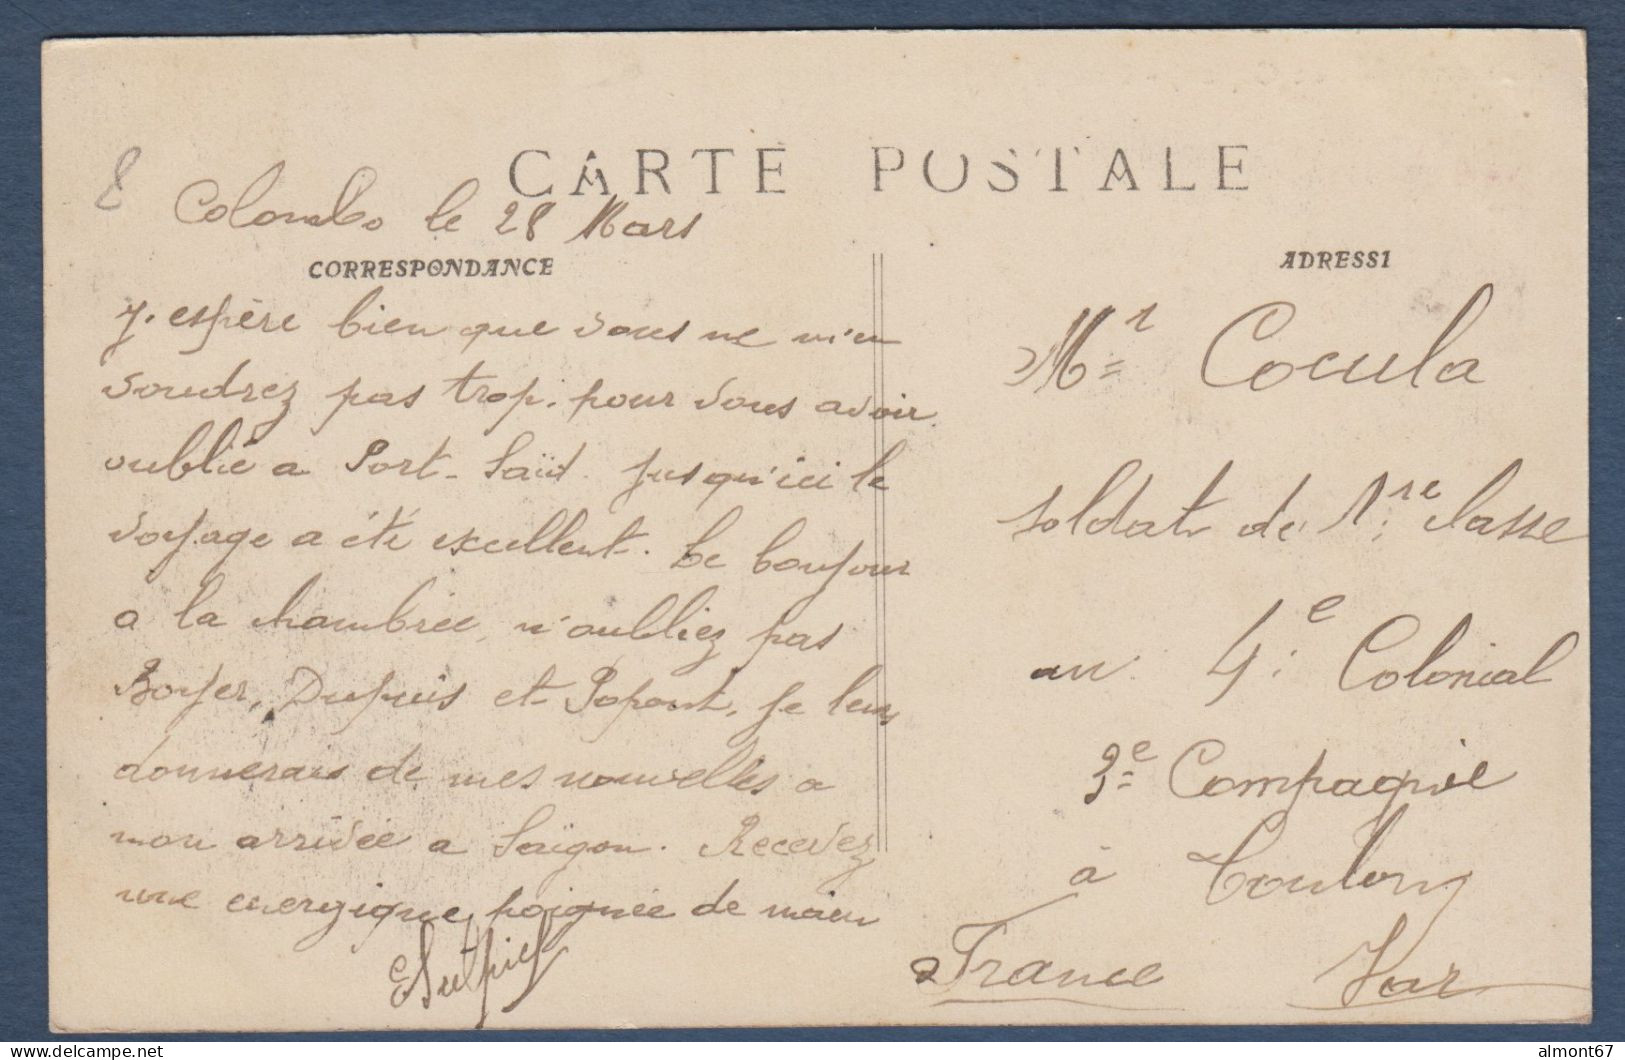 8
CARTE POSTALE
Colombo le 28 Mars
CORRESPONDANCE
J. espère bien que vous ne m'en
voudrez pas trop. pour vous avoir
oublié a Port-Saïd. Jusqu'ici le
voyage a été excellent. Le bonjour
a la chambrée, n'oubliez pas
Boyer, Dupuis et Popont, je leur
donnerais de mes nouvelles a
mon arrivée a Saïgon. Recevez
une energique poignée de main
ESulpice
ADRESSE
Mr Cocula
soldat de 1re classe
au 4e Colonial
3e Compagnie
à Toulon
France Var
delcampe.net
almont67